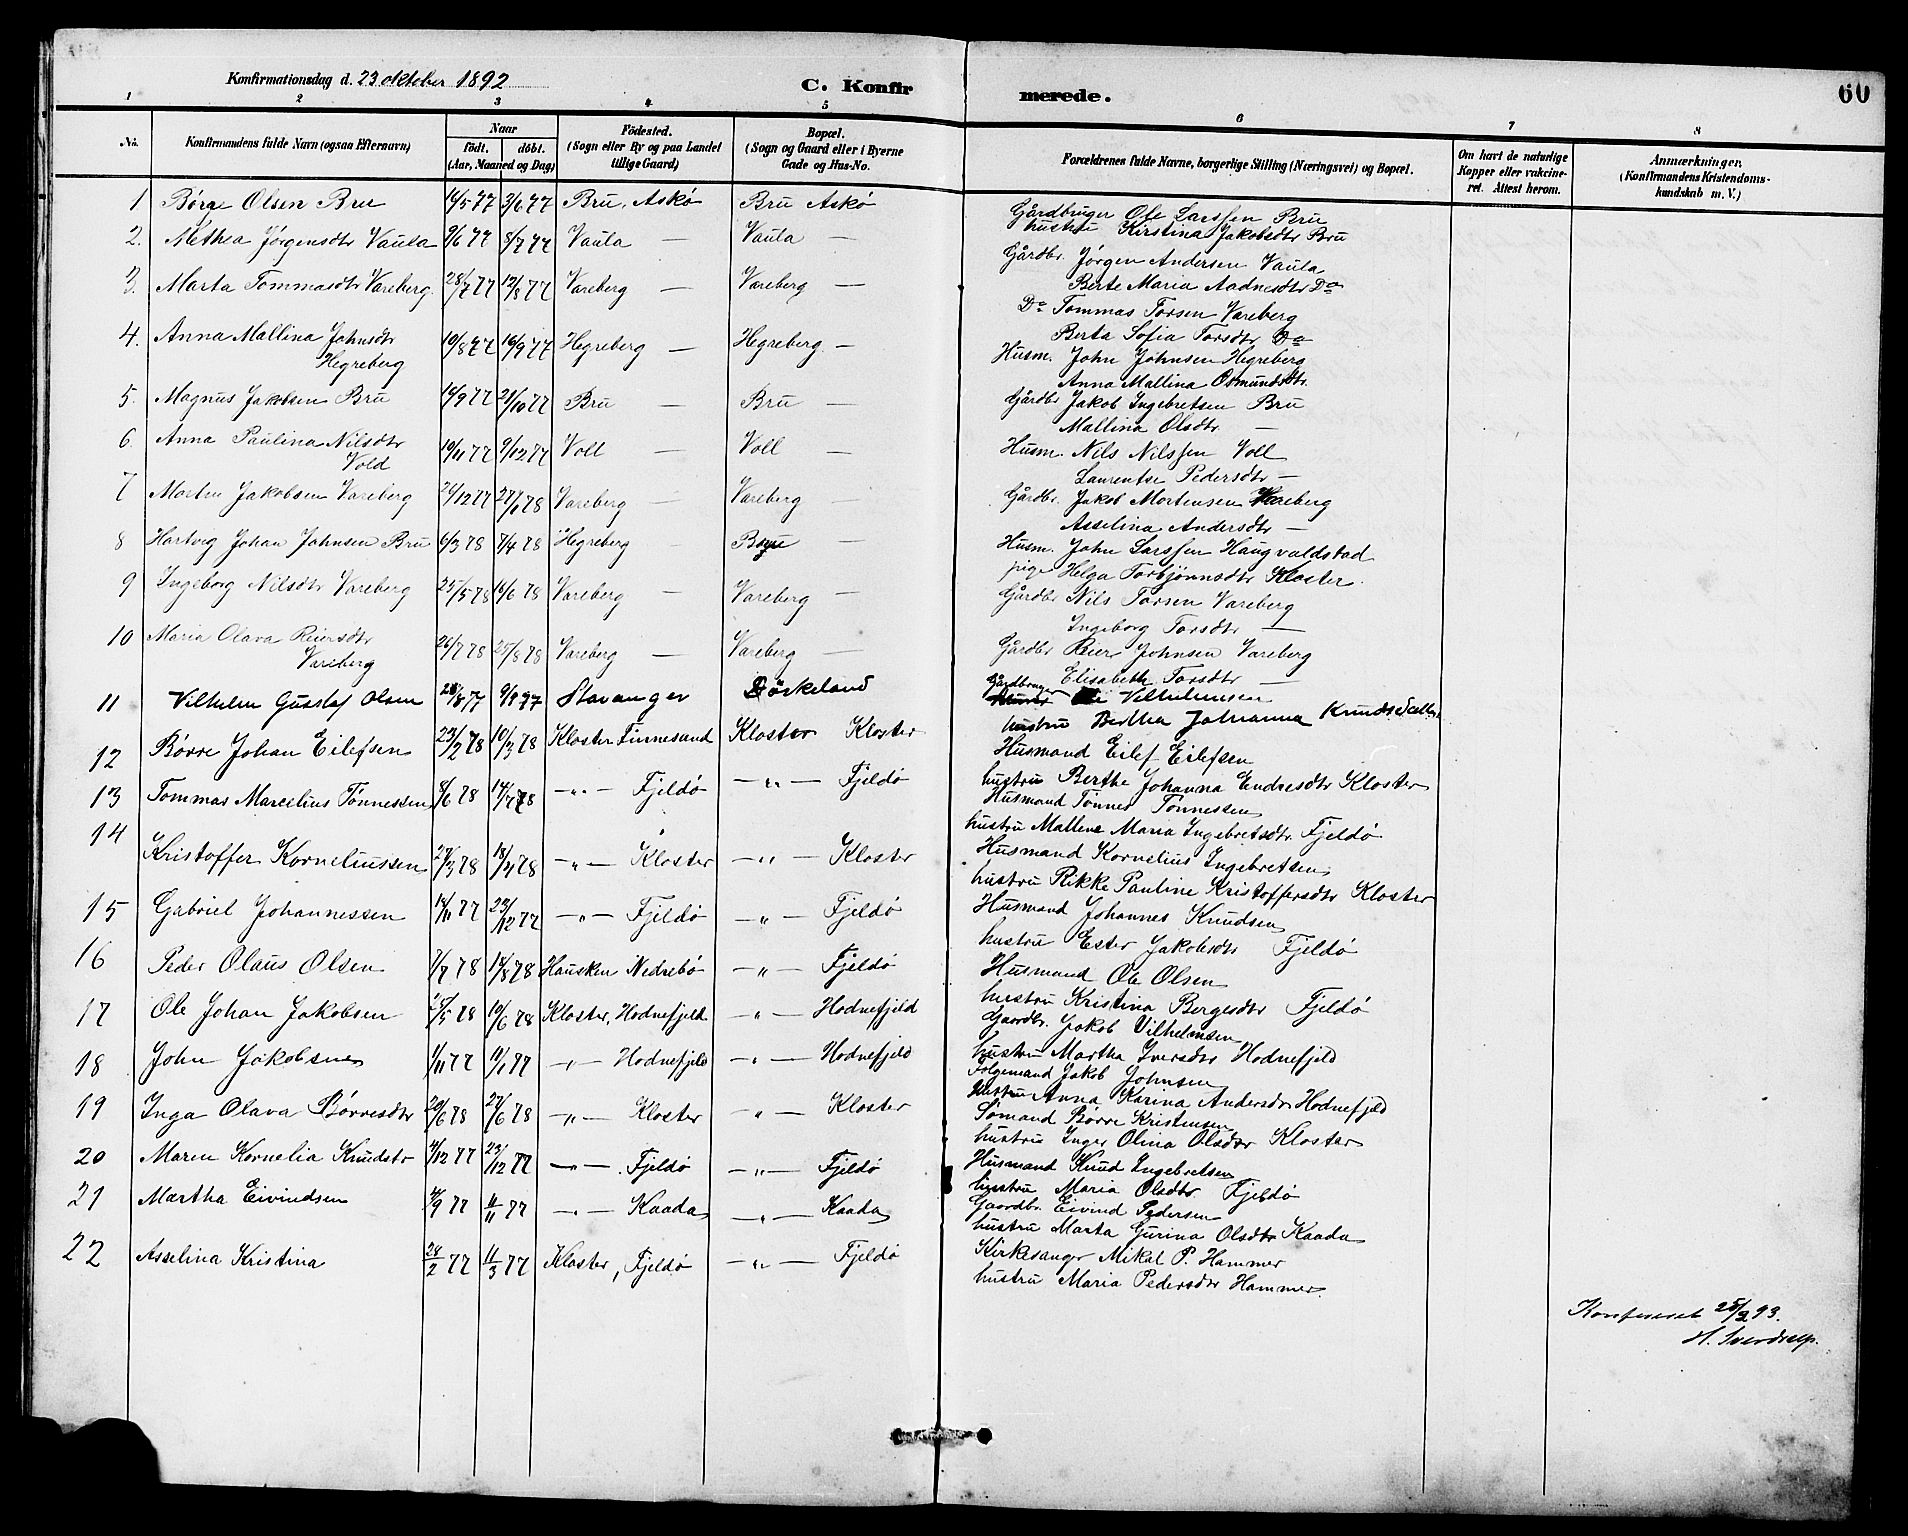 Konfirmationsdag d. 23 oktober 1892
C. Konfirmerede.
60
1 2 3 4 5 6 7 8
No.
Konfirmandens fulde Navn (ogsaa Efternavn)
Naar
født. døbt.
(Aar, Maaned og Dag)
Födested.
(Sogn eller By og paa Landet
tillige Gaard)
Bopæl.
(Sogn og Gaard eller i Byerne
Gade og Hus-No.
Forældrenes fulde Navne, borgerlige Stilling (Næringsvei) og Bopæl.
Om havt de naturlige
Kopper eller vakcine-
ret. Attest herom.
Anmærkninger,
(Konfirmandens Kristendoms-
kundskab m. V.)
1 Børge Olsen Bru 14/5 77 3/6 77 Bru, Askø Bru Askø Gårdbruger Ole Larssen Bru
hustru Kirstina Jakobsdtr Bru
2. Methea Jørgensdtr Vaula 9/6 77 8/7 77 Vaula — Vaula — Gårdbr. Jørgen Andersen Vaula
Berte Maria Aadnesdtr Do
3. Marta Tommasdtr Vareberg. 28/7 77 12/8 77 Vareberg — Vareberg — Do Tommas Torsen Vareberg
Berta Sofia Torsdtr Do
4. Anna Mallina Johnsdtr
Hegreberg 10/8 77 16/9 77 Hegreberg — Hegreberg — Husm. John Johnsen Hegreberg
Anna Mallina Osmundsdtr.
5. Magnus Jakobsen Bru 14/9 77 21/10 77 Bru — Bru — Gårdbr Jakob Ingebretsen Bru
Mallina Olsdtr. —
6. Anna Paulina Nilsdtr
Vold 10/11 77 9/12 77 Voll — Voll — Husm. Nils Nilssen Voll
Laurentse Pedersdtr —
7 Morten Jakobsen Vareberg 24/12 77 27/1 78 Vareberg — Vareberg — Gårdbr. Jakob Mortensen Vareberg
Asselina Andersdtr —
8 Hartvig Johan Johnsen Bru 6/3 78 7/4 78 Hegreberg — Husm. John Larssen Haugvaldstad
pige Helga Torbjørnsdtr Kloster.
9 Ingeborg Nilsdtr Vareberg 25/5 78 16/6 78 Vareberg — Vareberg — Gårdbr Nils Torsen Vareberg
Ingeborg Torsdtr —
10 Maria Olava Reiersdtr
Vareberg 26/7 78 25/8 78 Vareberg — Vareberg — Gårdbr Reier Johnsen Vareberg
Elisabeth Torsdtr —
11 Vilhelm Gustaf Olsen 9/9 77 Stavanger Dörkeland Gårdbruger Vilhelmsen
hustru Bertha Johanna
12 Børre Johan Eilefsen 22/2 78 10/3 78 Kloster Finnesand Kloster Kloster Husmand Eilef Eilefsen
hustru Berthe Johanna Endresdtr Kloster
13 Tommas Marcelius Tønnessen 8/6 78 14/7 78 —„— Fjeldø —„— Fjeldø Husmand Tønnes Tønnessen
hustru Mallene Maria Ingebretsdtr. Fjeldø
14 Kristoffer Korneliussen 27/3 78 18/4 78 —„— Kloster —„— Kloster Husmand Kornelius Ingebretsen
hustru Rikke Pauline Kristoffersdtr Kloster
15 Gabriel Johannessen 14/11 77 23/12 77 —„— Fjeldø —„— Fjeldø Husmand Johannes Knudsen
hustru Ester Jakobsdtr Fjeldø
16 Peder Olaus Olsen 7/7 78 14/8 78 Hausken Nedrebø —„— Fjeldø Husmand Ole Olsen
hustru Kristina Bergesdtr Fjeldø
17 Ole Johan Jakobsen 10/6 78 Kloster, Hodnefjeld. —„— Hodnefjeld Gaardbr. Jakob Vilhelmsen
hustru Martha Iversdtr Hodnefjeld
18 John Jakobsen 1/11 77 11/1 77 —„— Hodnefjeld —„— Hodnefjeld Folgemand Jakob Johnsen
hustru Anna Karina Andersdtr Hodnefjeld
19 Inga Olava Børresdtr 20/6 78 27/6 78 —„— Kloster —„— Kloster Sømand Børre Kristensen
hustru Inger Olina Olsdtr Kloster
20 Maren Kornelia Knudsdtr 4/12 77 23/12 77 —„— Fjeldø —„— Fjeldø Husmand Knud Ingebretsen
hustru Maria Olsdtr Fjeldø
21 Martha Eivindsen 4/9 77 11/11 77 —„— Kaada —„— Kaada Gaardbr. Eivind Pedersen
hustru Marta Gurina Olsdtr Kaada
22 Asselina Kristina 28/2 77 11/3 77 Kloster, Fjeldø —„— Fjeldø Kirkesanger Mikal P. Hammer
hustru Maria Pedersdtr Hammer.
Konfereret 25/3 93.
H. Sverdrup.